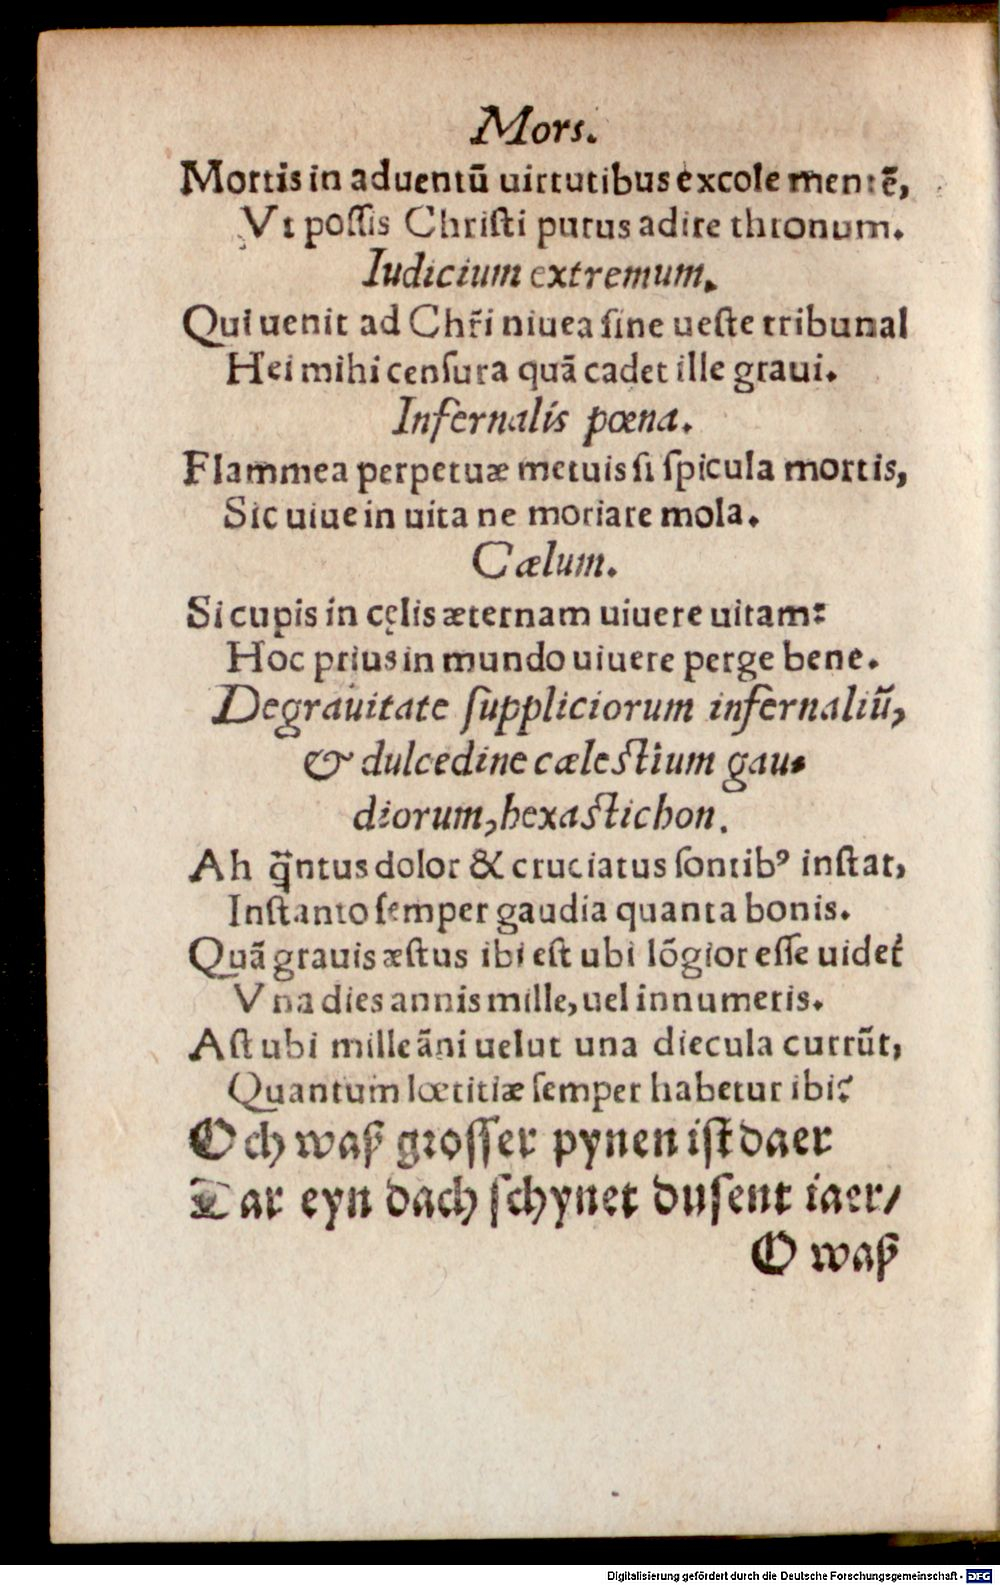 Mors.
Mortis in aduentū uirtutibus excole mentē,
Vt possis Christi purus adire thronum.
Iudicium extremum.
Qui uenit ad Chr̃i niuea sine ueste tribunal
Hei mihi censura quā cadet ille graui.
Infernalis pœna.
Flammea perpetuæ metuis si spicula mortis,
Sic uiue in uita ne moriare mola.
Cælum.
Si cupis in cęlis æternam uiuere uitam:
Hoc prius in mundo uiuere perge bene.
De grauitate suppliciorum infernaliū,
& dulcedine cælestium gau-
diorum, hexastichon.
Ah q̃ntus dolor & cruciatus sontibꝰ instat,
Instanto semper gaudia quanta bonis.
Quā grauis æstus ibi est ubi lōgior esse uidet᷑
Vna dies annis mille, uel innumeris.
Ast ubi mille āni uelut una diecula currūt,
Quantum lœtitiæ semper habetur ibi?
Och waß grosser pynen ist daer
Dar eyn dach schynet dusent iaer/
O waß
Digitalisierung gefördert durch die Deutsche Forschungsgemeinschaft - DFG